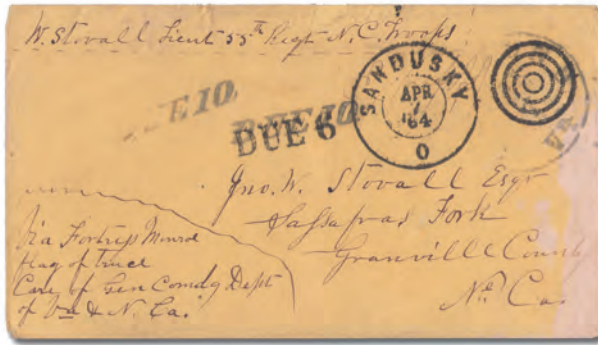 W. Stovall Lieut 55th Regt N.C. Troops
DUE 10
DUE 10
DUE 6
SANDUSKY
APR
7
'64
O
VA
Jno. W. Stovall Esqr
Sassafras Fork
Granville County
No Ca.
Via Fortress Monroe
flag of truce
Care of Gen Comdg Dept
of Va & N. Ca.